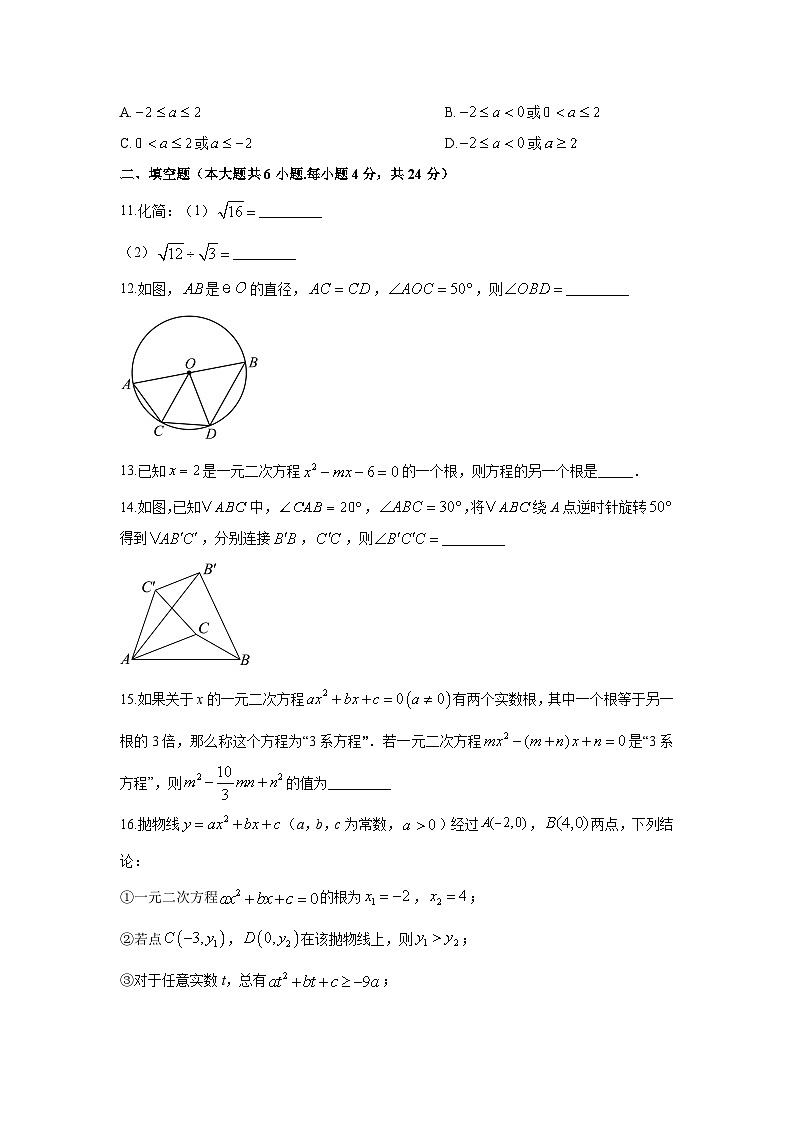 A. −2 ≤ a ≤ 2 B. −2 ≤ a < 0或0 < a ≤ 2
C. 0 < a ≤ 2或a ≤ −2 D.−2 ≤ a < 0或a ≥ 2
二、填空题（本大题共6小题.每小题4分，共24分）
11.化简：（1）√16 = _________
（2）√12 ÷ √3 = _________
12.如图，AB是⊖O的直径，AC = CD，∠AOC = 50°，则∠OBD = _________
O
B
A
C
D
13.已知x = 2是一元二次方程x² − mx − 6 = 0的一个根，则方程的另一个根是_____．
14.如图,已知∨ABC中，∠CAB = 20°，∠ABC = 30°,将∨ABC绕A点逆时针旋转50°
得到∨AB′C′，分别连接B′B，C′C，则∠B′C′C = _________
B′
C′
C
A
B
15.如果关于x的一元二次方程ax² + bx + c = 0(a ≠ 0)有两个实数根，其中一个根等于另一
根的3倍，那么称这个方程为“3系方程”．若一元二次方程mx² − (m + n)x + n = 0是“3系
方程”，则m² − 10/3 mn + n²的值为_________
16.抛物线y = ax² + bx + c（a，b，c为常数，a > 0）经过A(−2,0)，B(4,0)两点，下列结
论：
①一元二次方程ax² + bx + c = 0的根为x₁ = −2，x₂ = 4；
②若点C(−3, y₁)，D(0, y₂)在该抛物线上，则y₁ > y₂；
③对于任意实数t，总有at² + bt + c ≥ −9a；